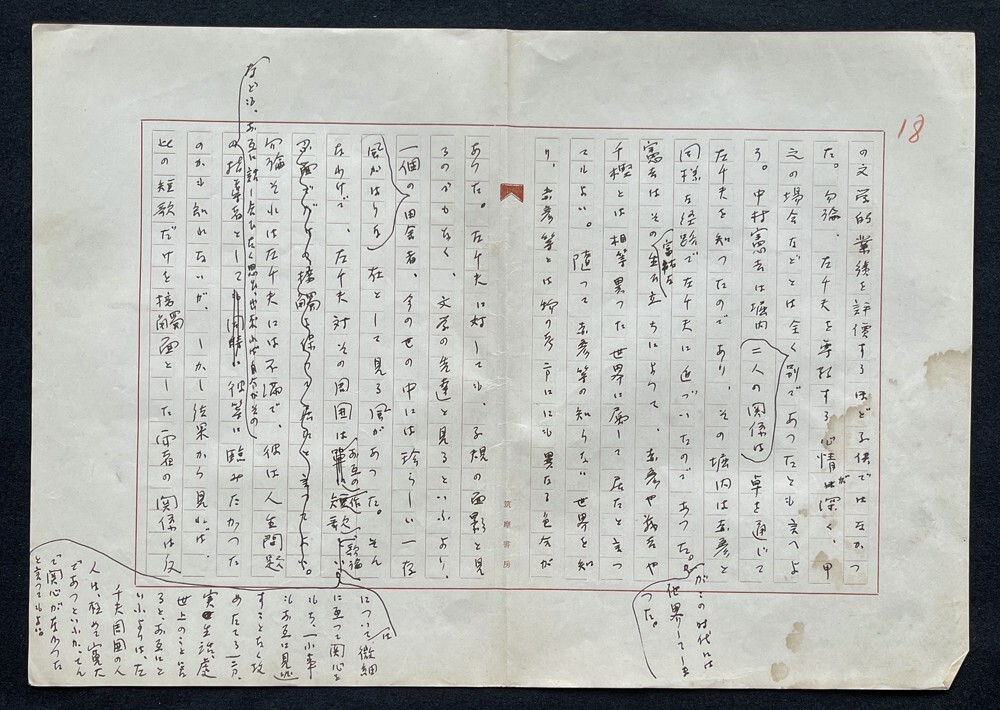 18
の文学的業績を評價するほど子供ではなかつ
た。勿論、左千夫を尊敬する心情が深く、甲
之の場合などとは全く別であつたとも言へよ
う。中村憲吉は堀内 二人の関係は 卓を通じて
左千夫を知つたのであり、その堀内は赤彦と
同様な経路で左千夫に近づいたのであつた。
がこの時代には
他界してしま
つた。
憲吉はその 富裕な 生ひ立ちによつて、赤彦や茂吉や
千樫とは相等異つた世界に属して居たと言つ
てもよい。随つて赤彦等の知らない世界を知
り、赤彦等とは物の考へ方にも異なる色合が
筑摩書房
あつた。左千夫に対しても、子規の面影と見
るのでもなく、文学の先達と見るといふより、
一個の田舎者、今のせの中には珍らしい一存
風がはりな 在として見る風があつた。そん
なわけで、左千夫対その周囲は お互の作 短歌 歌論
勿論それは左千夫には不満で、彼は人生問題
なども、お互に
の指導者として 彼等に臨みたかつた
のかも知れないが、しかし結果から見れば、
此の短歌だけを接觸面とした 関係は反
について微細
に亙つて関心を
もち、一小事
もお互に見逃
すことなく攻
めたてる一方、
実生活、処
世上のこととな
ると、お互にと
いふよりは、左
千夫周囲の人
人は、極めて寛大
であつたといふか、てん
で関心がなかつた
と言つてもよい。